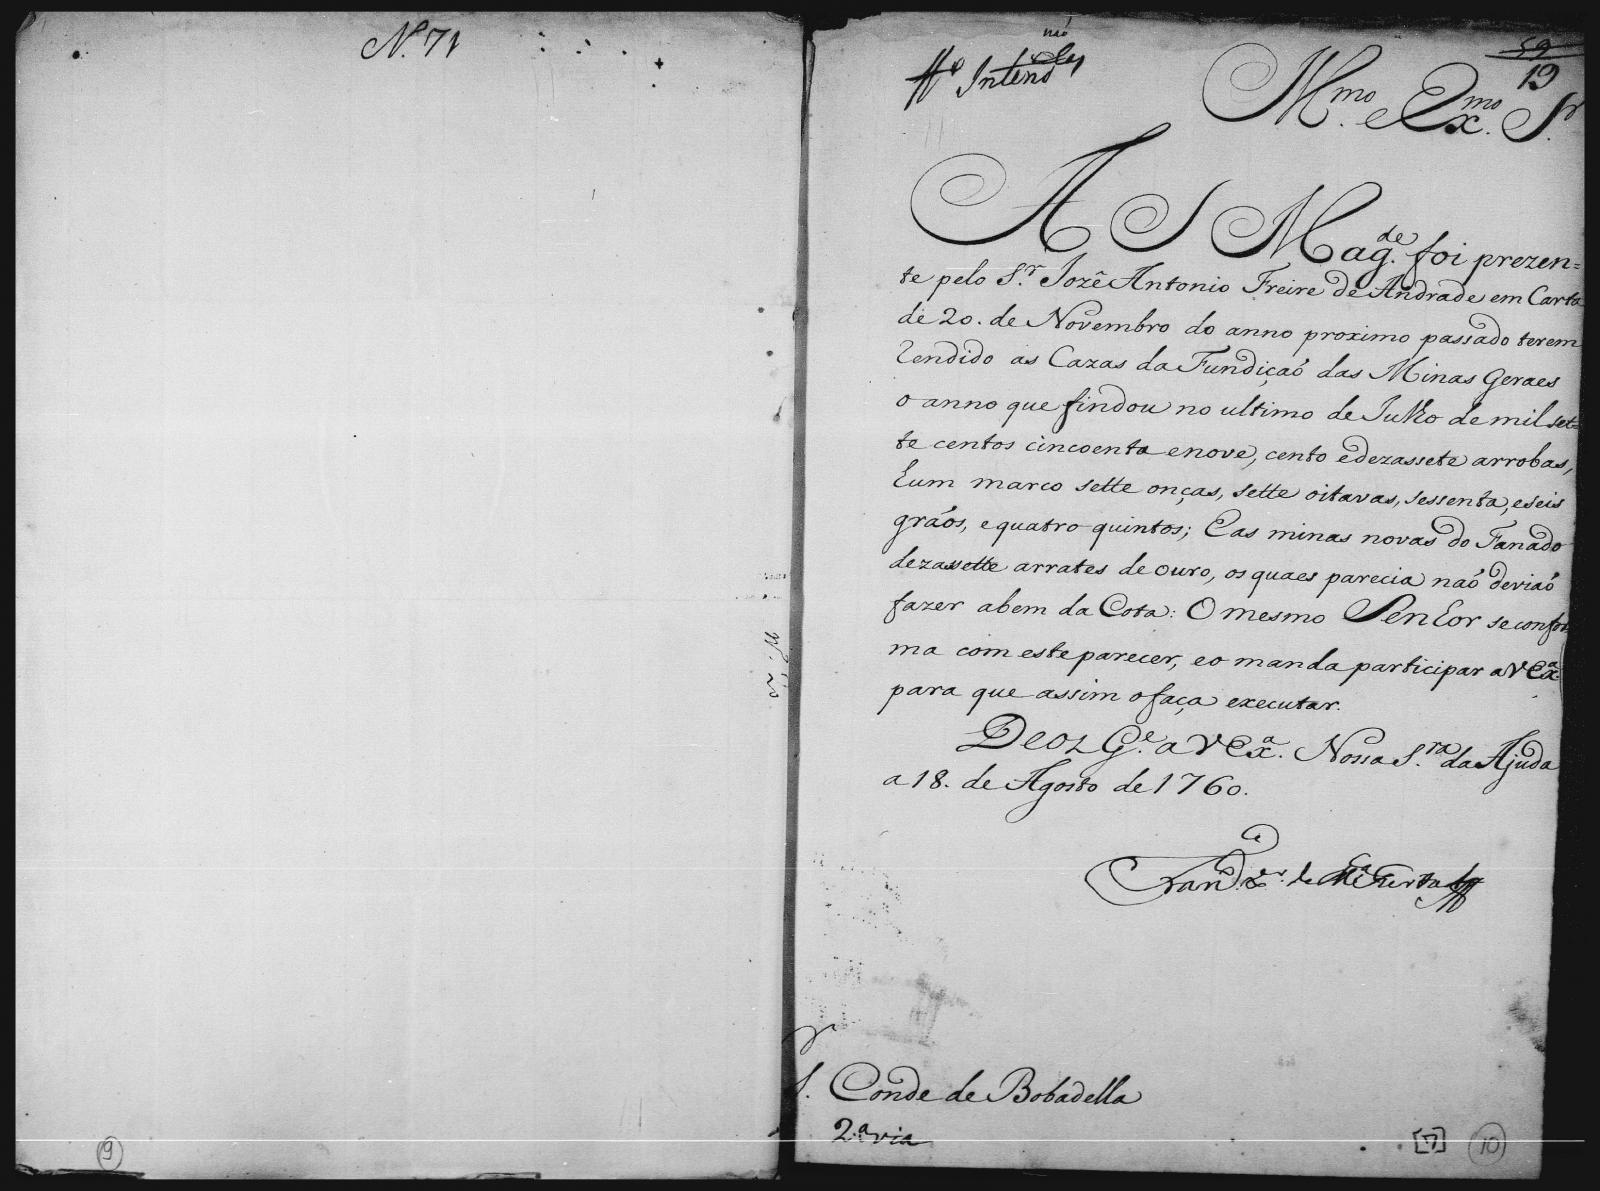 N. 71
9
não
Intend.
59
19
Illmo. e Exmo. Sr.
A S Magde. foi prezen=
te pelo Sr. Jozê Antonio Freire de Andrade em Carta
de 20. de Novembro do anno proximo passado terem
rendido as Cazas da Fundiçaó das Minas Geraes
o anno que findou no ultimo de Julho de mil set=
te centos cincoenta e nove, cento e dezassete arrobas,
hum marco sette onças, sette oitavas, sessenta, e seis
gráos, e quatro quintos; E as minas novas do Fanado
dezassette arrates de ouro, os quaes parecia naó deviaó
fazer a bem da Cota: O mesmo Senhor se confor
ma com este parecer, e o manda participar a V Exa.
para que assim o faça executar.
Deos Ge. a V Exa. Nossa Sra. da Ajuda
a 18. de Agosto de 1760.
Franco. Xer. de Mça. Furtado
Sr. Conde de Bobadella
2.a via
[7]
10